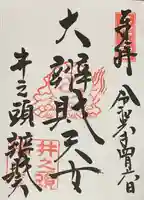 奉拝
令和六年四月六日
大辨財天女
井之頭 辨財天
井之頭